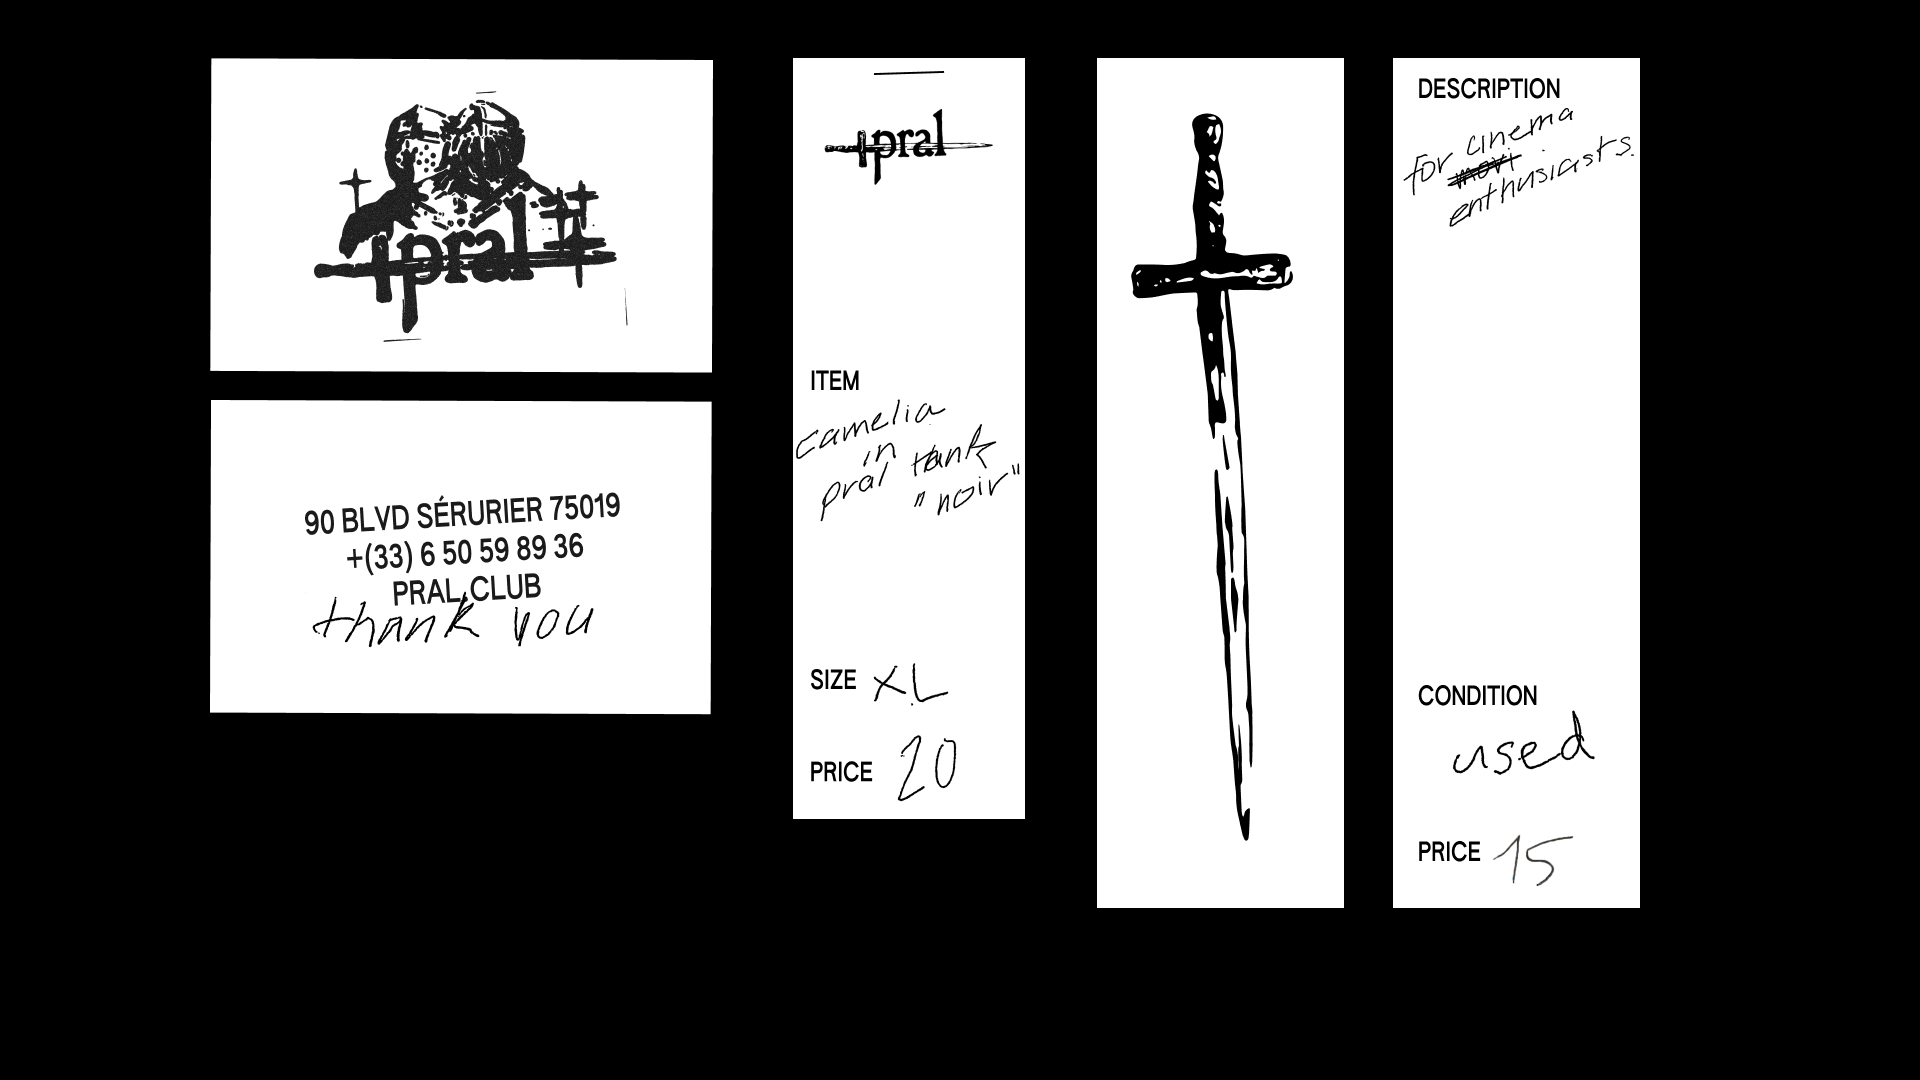 pral
90 BLVD SÉRURIER 75019
+(33) 6 50 59 89 36
PRAL.CLUB
thank you
pral
ITEM
camelia
in
pral tank
"noir"
SIZE XL
PRICE 20
DESCRIPTION
for cinema
movi
enthusiasts.
CONDITION
used
PRICE 15